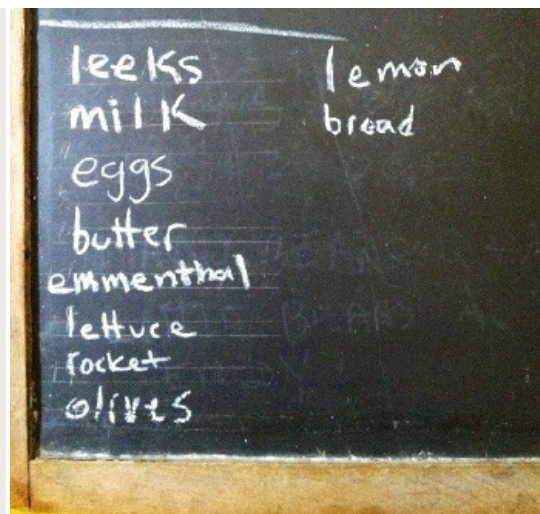 leeks
milk
eggs
butter
emmenthal
lettuce
rocket
olives
lemon
bread
BEANS
BEANS